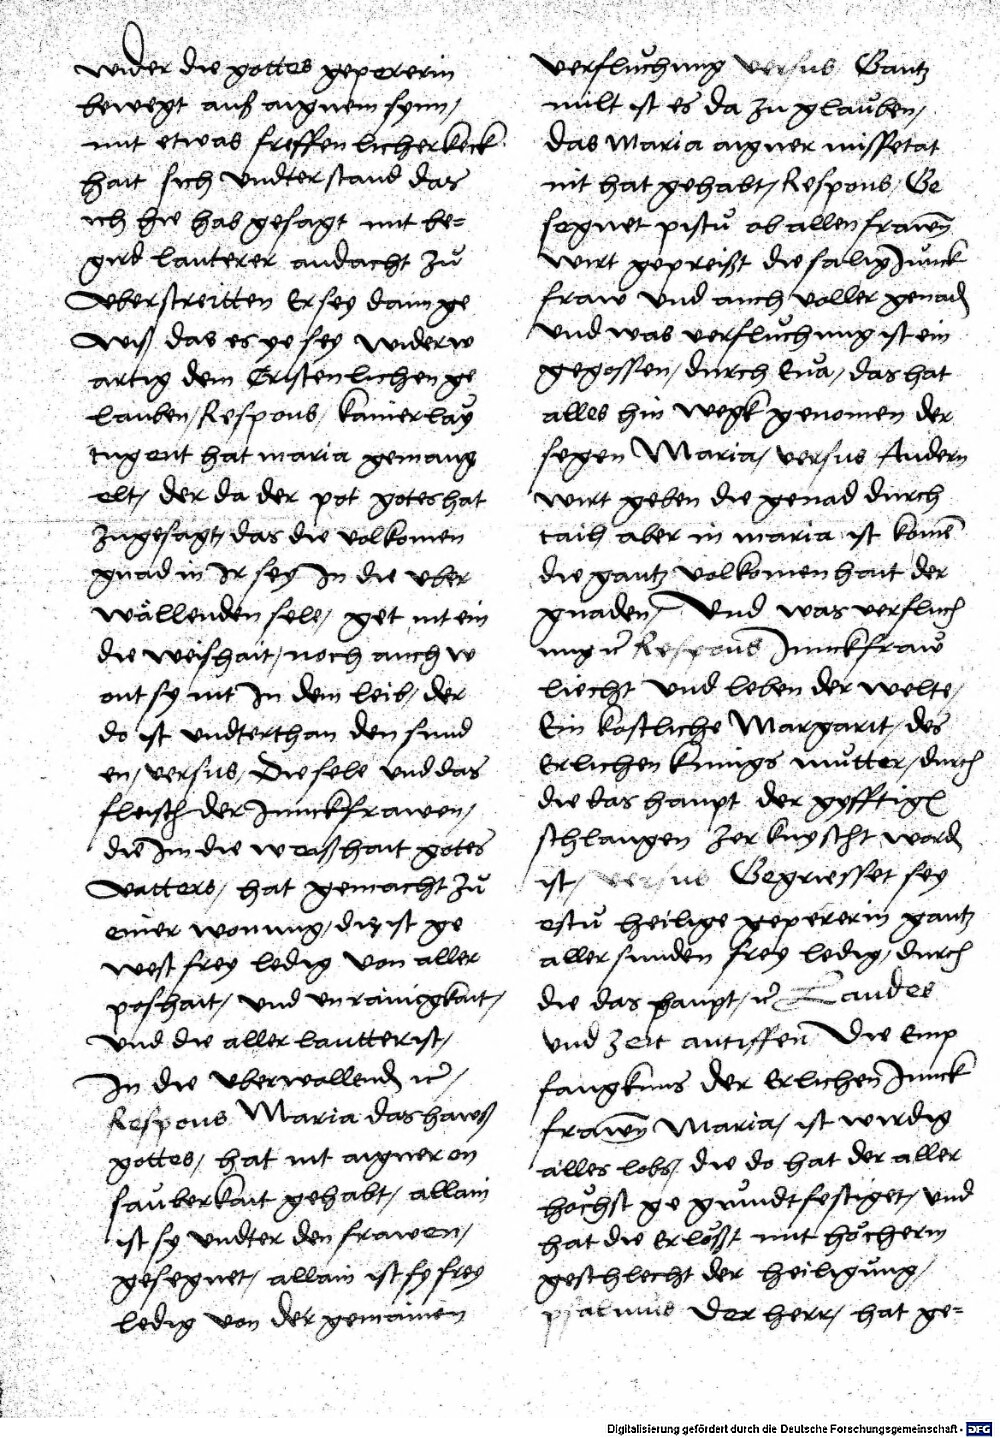 wider die gottes gepererin
bewegt auß aignem synn,
mit etwas freffenlicher keck
hait sich vndterstand das
ich hie hab gesagt mit be-
gird lauterer andacht zů
vberstreitten Er sey dann ge
wiß das es ye sey widerw
artig dem Cristenlichen ge
lauben, Respons, kainerlay
tugent hat maria gemang
elt, der da der pot gotes hat
zugesagt, das die volkomen
gnad in Ir sey In die vber
wällenden sele, get nit ein
die weishait, noch auch w
ont sy nit In dem leib, der
do ist vndterthan den sund
en, versus, Die sele vnd das
fleisch der Junckfrawen,
die Im die weißhait gotes
vatters, hat gemacht zů
einer wonung, die ist ge
west frey ledig von aller
poshait, vnd vnrainigkait,
vnd die aller lautter ist,
In die vberwallend ꝛc,
Respons Maria das hawß
gottes, hat nit aigner on
sauberkait gehabt, allain
ist sy vndter den frawen,
gesegnet, allain ist sy frey
ledig von der gemainen
verfluchung versus Gantz
milt ist es da zu glauben,
das Maria aigner missetat
nit hat gehabt, Respons, Ge
segnet pistu ob allen frawen
wirt gepreißt die salig Junck
fraw vnd auch voller genad
vnd was verfluchung ist ein
gegossen, durch Eua, das hat
alles hin wegk genomen der
segen Maria, versus Andern
wirt geben die genad durch
tail, aber in maria ist komen
die gantz volkomenhait der
gnaden, Vnd was verfluch
ung ꝛc Respons Junckfraw
liecht vnd leben der welte,
Ein kostliche Margarit, des
Erlichen kunigs mutter, durch
die das haupt der gyfftigen
schlangen zerknyscht worden
ist, versus Gegriesset sey
estu heilige gepererin gantz
aller sunden frey ledig, durch
die das haupt, ꝛc Laudes
vnd zeit antiffen Die Emp
fangknus der Erlichen Junck
frawen Maria, ist wirdig
alles lobs, die do hat der aller
hochst gegrundtfestiget, vnd
hat die Erlößt mit höcherm
geschlecht der heiligung,
psalmus Der herr, hat ge-
Digitalisierung gefördert durch die Deutsche Forschungsgemeinschaft - DFG